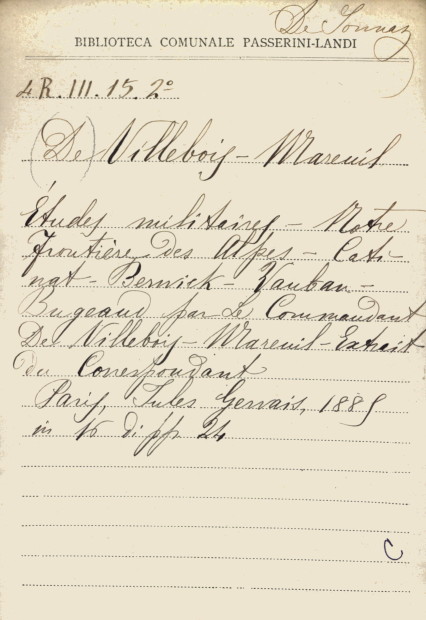 De Sonnaz
BIBLIOTECA COMUNALE PASSERINI-LANDI
4 R. III. 15. 2º
(De) Villebois - Mareuil
Études militaires - Notre
Frontière des Alpes - Cati-
nat - Berwick - Vauban -
Bugeaud par Le Commandant
De Villebois - Mareuil - Extrait
du Correspondant
Paris, Jules Gervais, 1889
in 16 di pp. 24
C